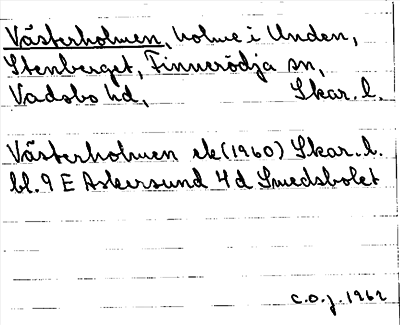 Västerholmen, holme i Unden,
Stenberget, Finnerödja sn,
Vadsbo hd, Skar. l.
Västerholmen ek (1960) Skar. l.
bl. 9 E Askersund 4 d Smedsbolet
c.o.j. 1962